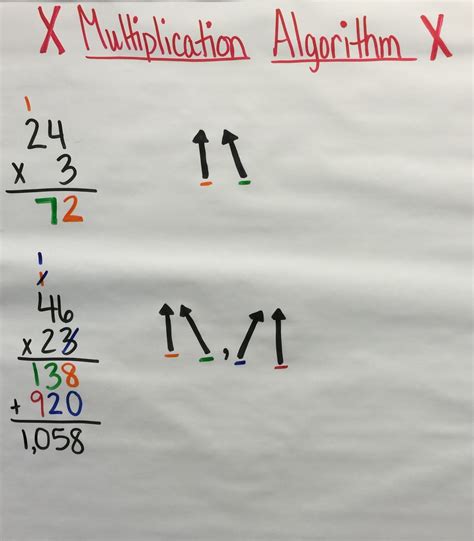 X Multiplication Algorithm X
1
24
x 3
72
1
1
46
x 23
138
+ 920
1,058
,